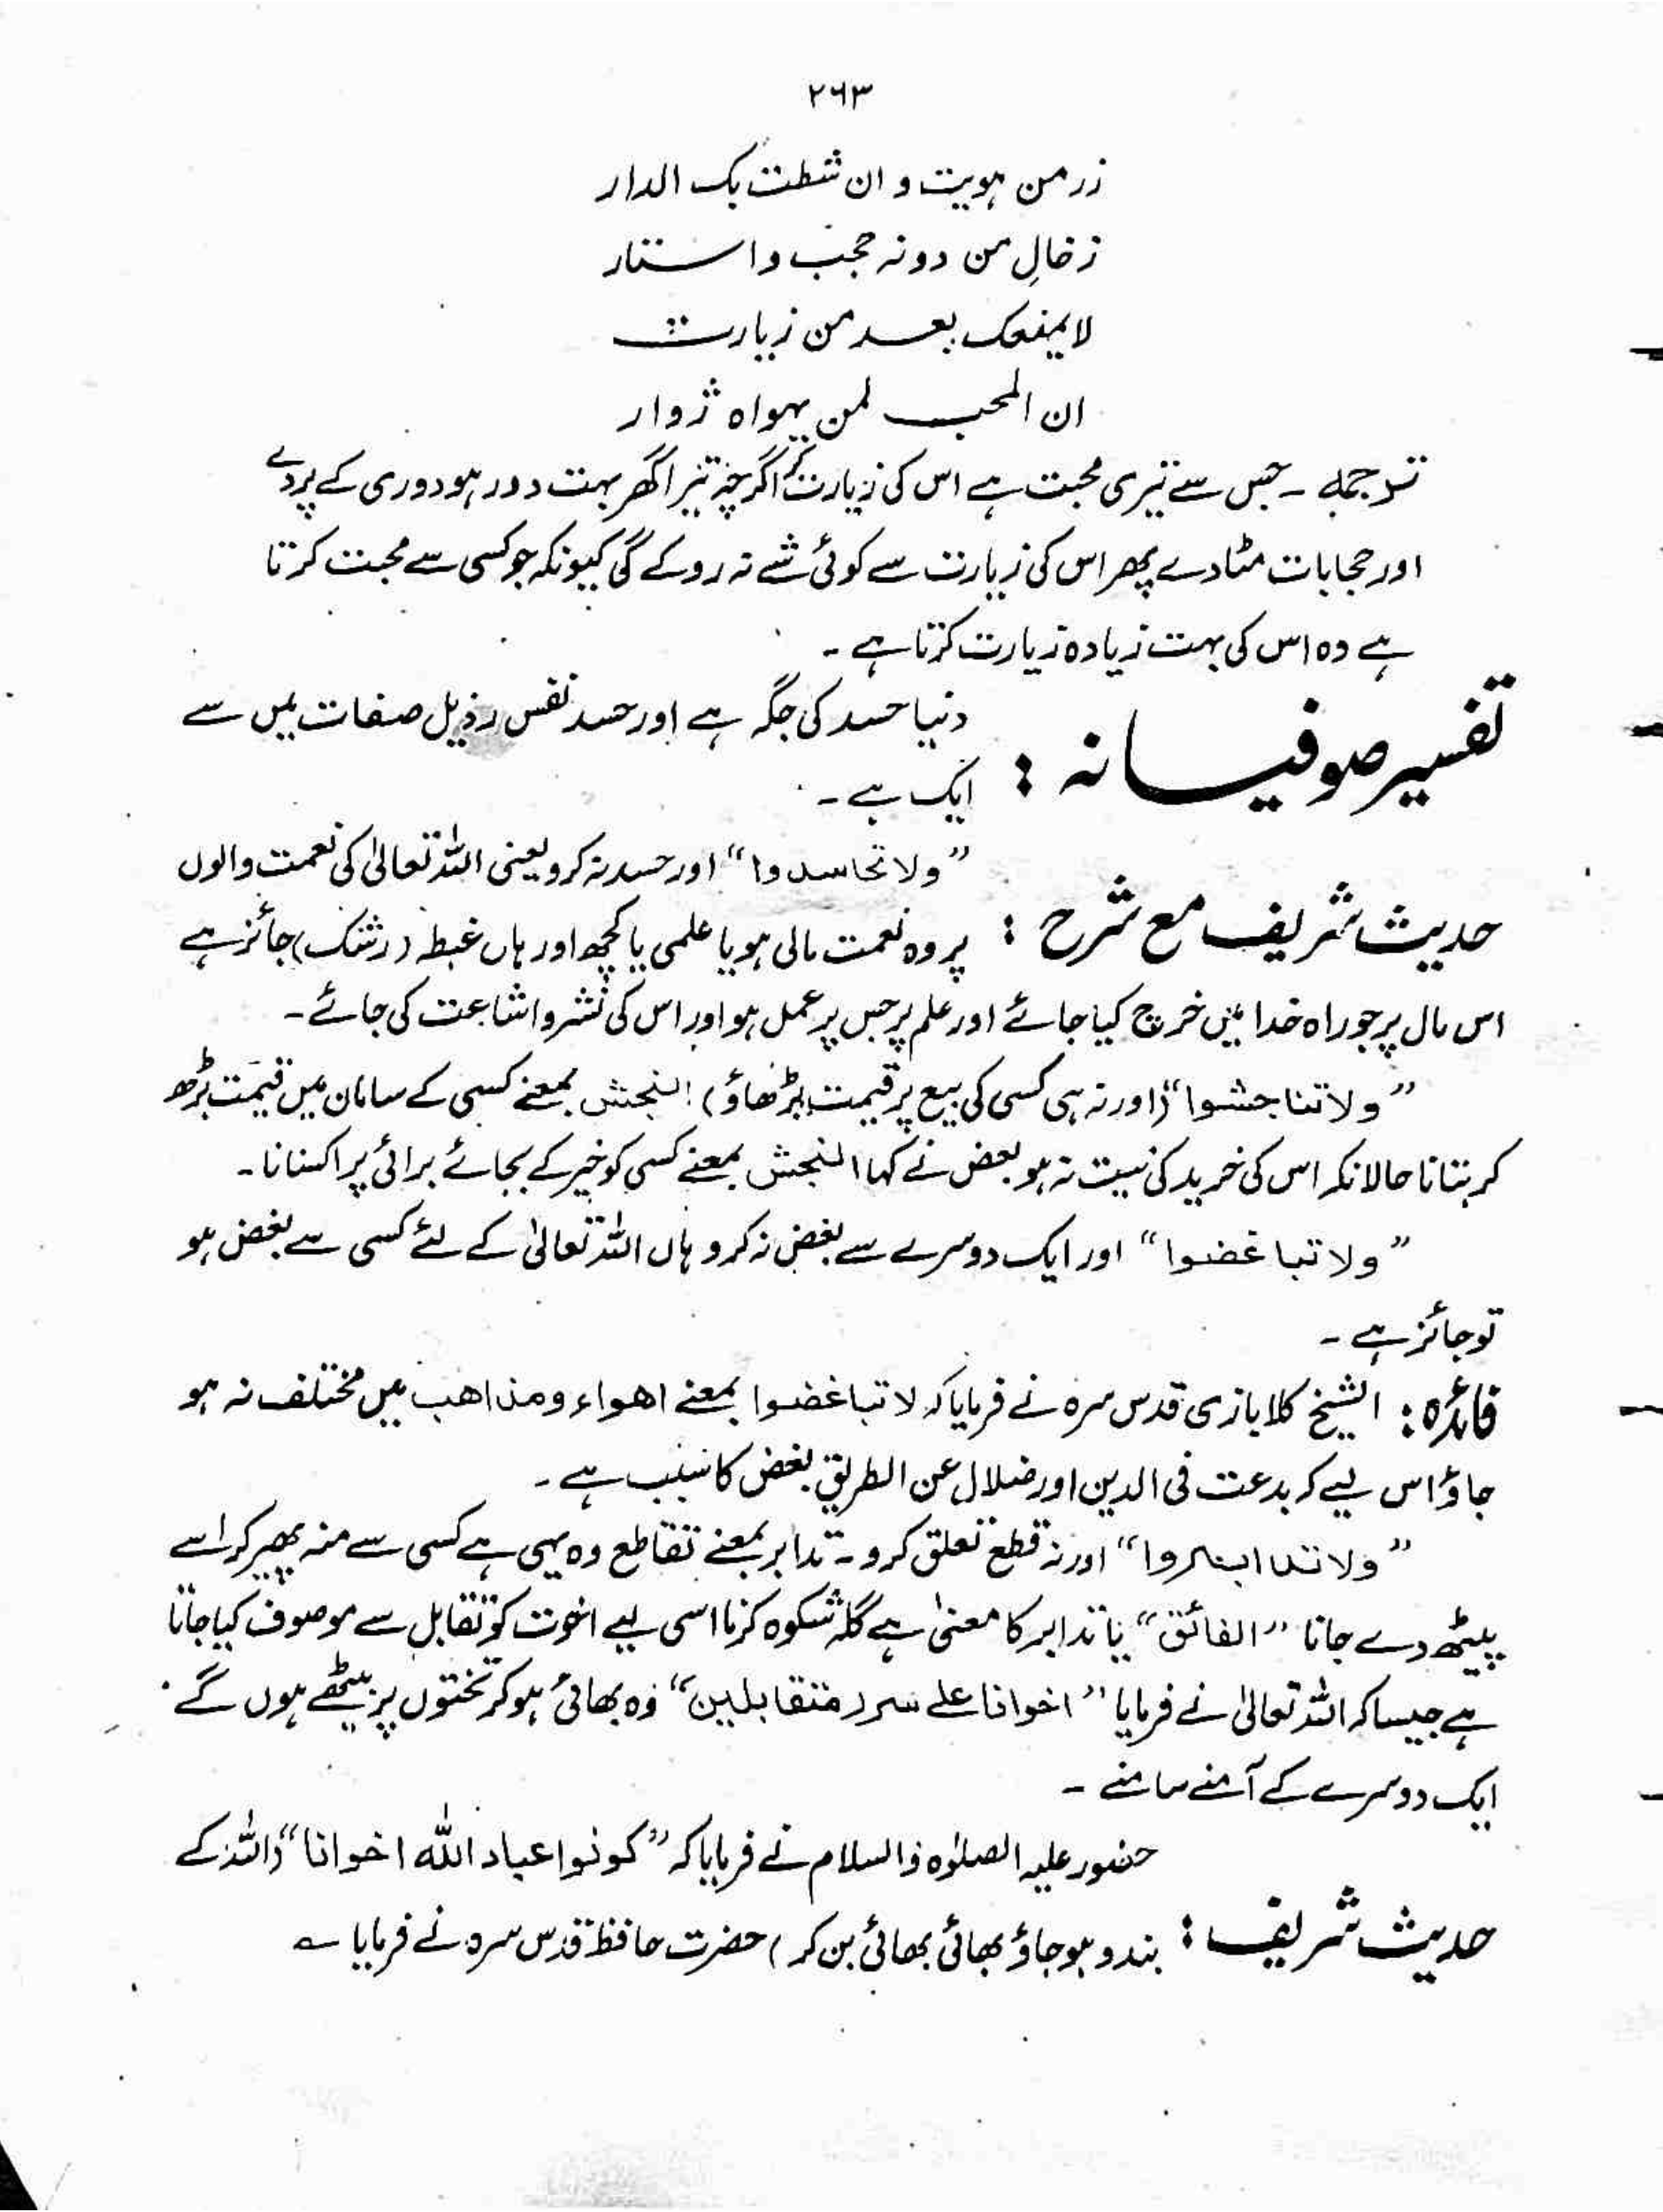 ۲۶۳
زر من ہویت و ان شطت بک الدار
زخالِ من دونہ حجب و استار
لا یمنعک بعد من زیارتہ
ان المحب لمن یہواہ زوار
ترجمہ ۔ جس سے تیری محبت ہے اس کی زیارت کر اگرچہ تیرا گھر بہت دور ہو دوری کے پردے
اور حجابات مٹا دے پھر اس کی زیارت سے کوئی شے نہ روکے گی کیونکہ جو کسی سے محبت کرتا
ہے وہ اس کی بہت زیادہ زیارت کرتا ہے ۔
تفسیر صوفیانہ : دنیا حسد کی جگہ ہے اور حسد نفس رذیل صفات میں سے
ایک ہے ۔
"ولا تحاسدوا" اور حسد نہ کرو یعنی اللہ تعالیٰ کی نعمت والوں
حدیث شریف مع شرح : پر وہ نعمت مالی ہو یا علمی یا کچھ اور ہاں غبطہ (رشک) جائز ہے
اس مال پر جو راہ خدا میں خرچ کیا جائے اور علم پر جس پر عمل ہو اور اس کی نشر و اشاعت کی جائے ۔
"ولا تناجشوا" (اور نہ ہی کسی کی بیع پر قیمت بڑھاؤ) النجش بمعنے کسی کے سامان میں قیمت بڑھ
کر بتانا حالانکہ اس کی خرید کی نیت نہ ہو بعض نے کہا النجش بمعنے کسی کو خیر کے بجائے برائی پر اکسانا ۔
"ولا تباغضوا" اور ایک دوسرے سے بغض نہ کرو ہاں اللہ تعالیٰ کے لئے کسی سے بغض ہو
تو جائز ہے ۔
فائدہ : الشیخ کلابازی قدس سرہ نے فرمایا کہ لا تباغضوا بمعنے اھواء ومذاھب میں مختلف نہ ہو
جاؤ اس لیے کہ بدعت فی الدین اور ضلال عن الطریق بغض کا سبب ہے ۔
"ولا تدابروا" اور نہ قطع تعلق کرو ۔ تدابر بمعنے تقاطع وہ یہی ہے کسی سے منہ پھیر کر اسے
پیٹھ دے جانا "الفائق" یا تدابر کا معنیٰ ہے گلہ شکوہ کرنا اسی لیے اخوت کو تقابل سے موصوف کیا جاتا
ہے جیسا کہ اللہ تعالیٰ نے فرمایا "اخوانا علے سرر متقابلین" وہ بھائی ہو کر تختوں پر بیٹھے ہوں گے
ایک دوسرے کے آمنے سامنے ۔
حضور علیہ الصلوٰہ والسلام نے فرمایا کہ "کونوا عباد اللہ اخوانا" (اللہ کے
حدیث شریف : بندو ہو جاؤ بھائی بھائی بن کر) حضرت حافظ قدس سرہ نے فرمایا ؎